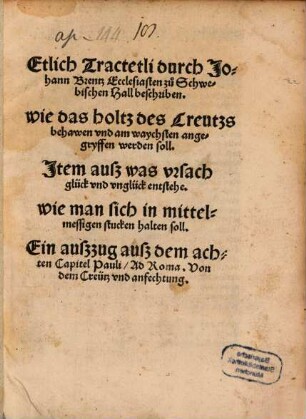 101.
Etlich Tractetli durch Jo-
hann Brentz Ecclesiasten zů Schwe-
bischen Hall beschriben.
wie das holtz des Creutzs
behawen vnd am waychsten ange-
gryffen werden soll.
Item ausz was vrsach
glück vnd vnglück entstehe.
wie man sich in mittel-
messigen stucken halten soll.
Ein auszzug ausz dem ach-
ten Capitel Pauli / Ad Roma. Von
dem Creütz vnd anfechtung.